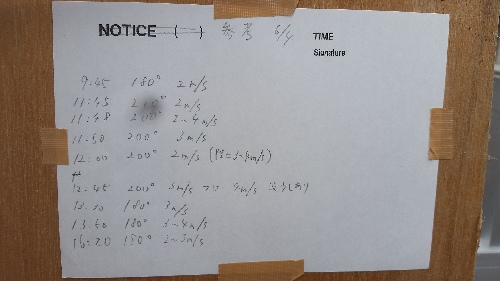 NOTICE ( ) 参考 6/4
TIME
Signature
9:45 180° 2m/s
11:45 210° 2m/s
11:48 200° 2~4m/s
11:50 200° 3m/s
12:00 200° 2m/s (時に3~4m/s)
12:45 200° 3m/s 4m/s
180° 3m/s
180° 3~4m/s
180° 2~3m/s